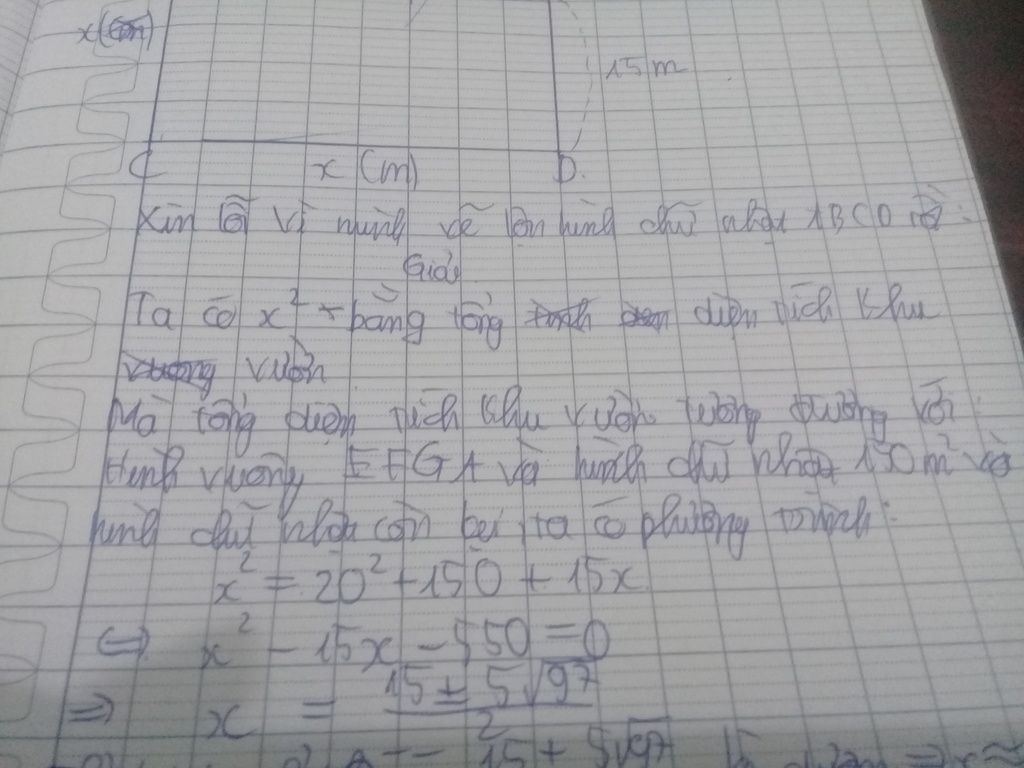 x (cm)
15m
C x (m) D.
Xin lỗi vì mình vẽ lộn hình chữ nhật ABCD
Giải
Ta có x² bằng tổng diện tích khu
vuong vườn
Mà tổng diện tích khu vườn tương đương với
Hình vuông EFGA và hình chữ nhật 150m² và
hình chữ nhật còn lại ta có phương trình:
x² = 20² + 150 + 15x
⇔ x² - 15x - 550 = 0
⇒ x = 15 ± 5√97 / 2
15 + 5√97